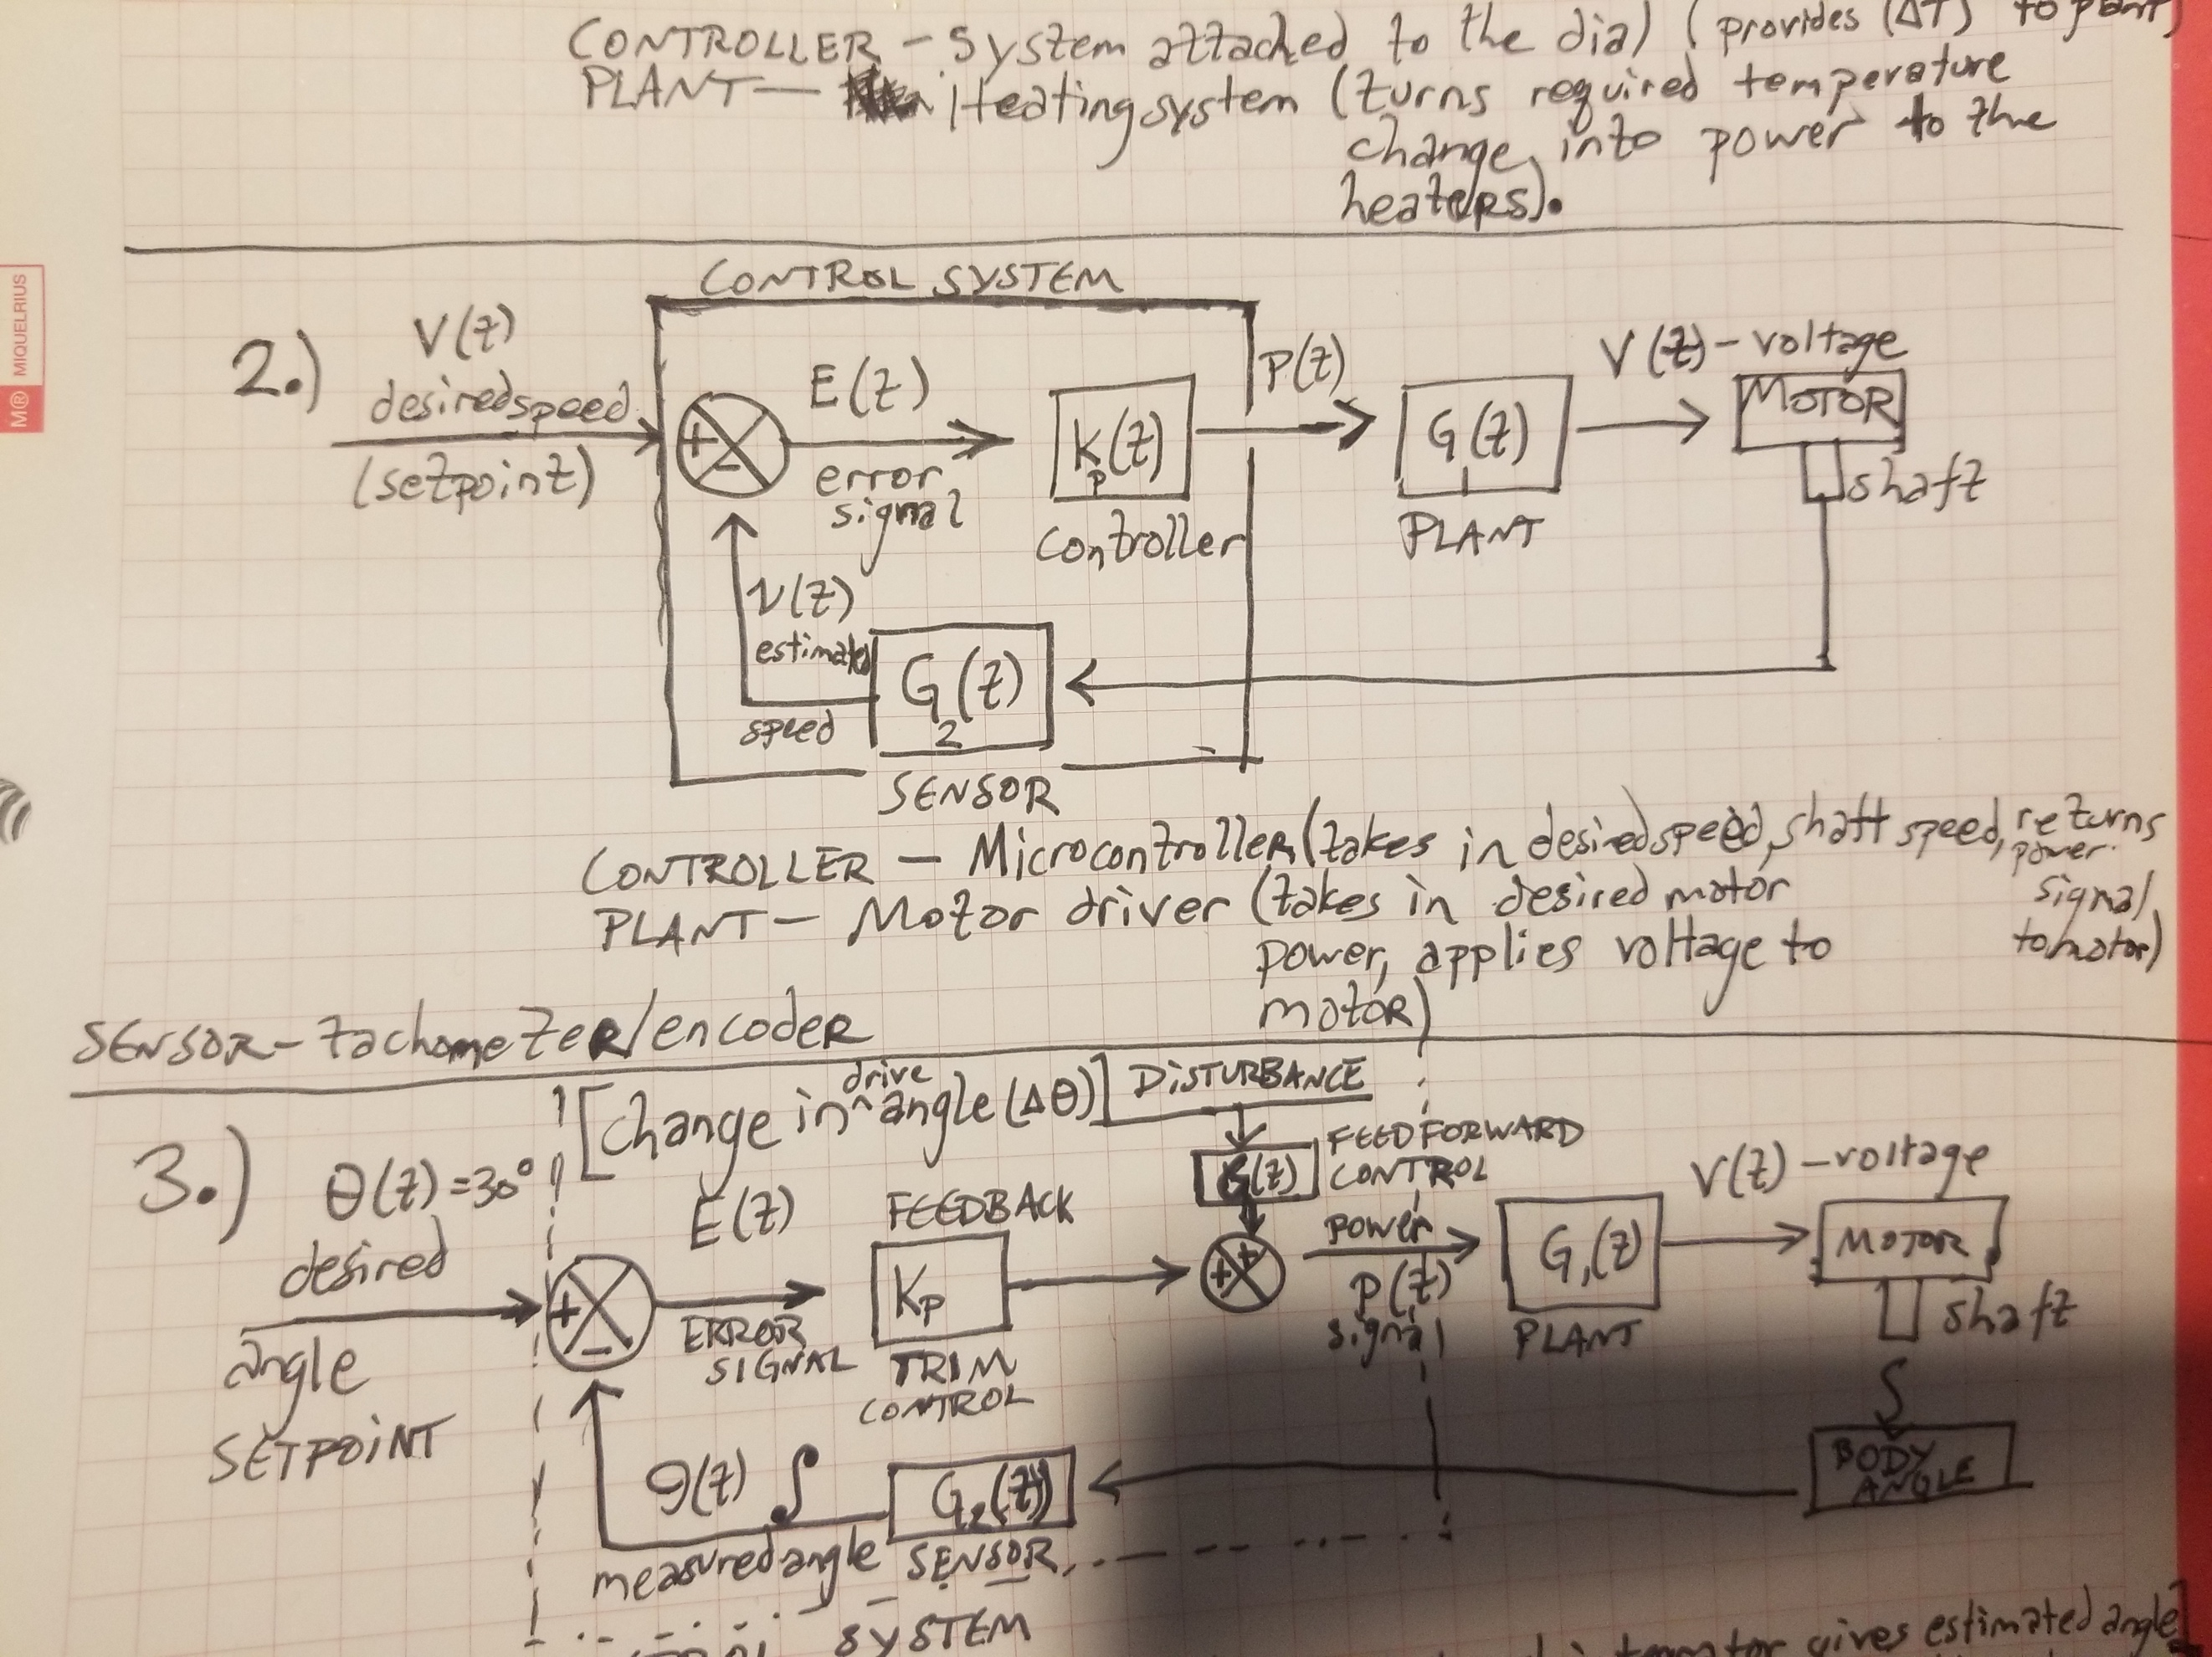 CONTROLLER - System attached to the dial (provides (ΔT) to plant)
PLANT - Heating system (turns required temperature
change into power to the
heaters).
MIQUELRIUS
CONTROL SYSTEM
2.)
V(t)
desired speed
(setpoint)
+
-
E(t)
error
signal
Kp(t)
controller
P(t)
G1(t)
PLANT
V(t) - voltage
MOTOR
shaft
v(t)
estimated
speed
G2(t)
SENSOR
CONTROLLER - Microcontroller (takes in desired speed, shaft speed, returns
power
signal
to motor)
PLANT - Motor driver (takes in desired motor
power, applies voltage to
motor)
SENSOR - tachometer/encoder
[Change in ^ drive angle (Δθ)]
DISTURBANCE
3.)
θ(t) = 30°
desired
angle
SETPOINT
+
-
E(t)
ERROR
SIGNAL
FEEDBACK
Kp
TRIM
CONTROL
G(t)
FEEDFORWARD
CONTROL
+
+
power
P(t)
signal
G1(t)
PLANT
V(t) - voltage
MOTOR
shaft
∫
BODY
ANGLE
θ(t) ∫
measured angle
G2(t)
SENSOR
SYSTEM
gives estimated angle]